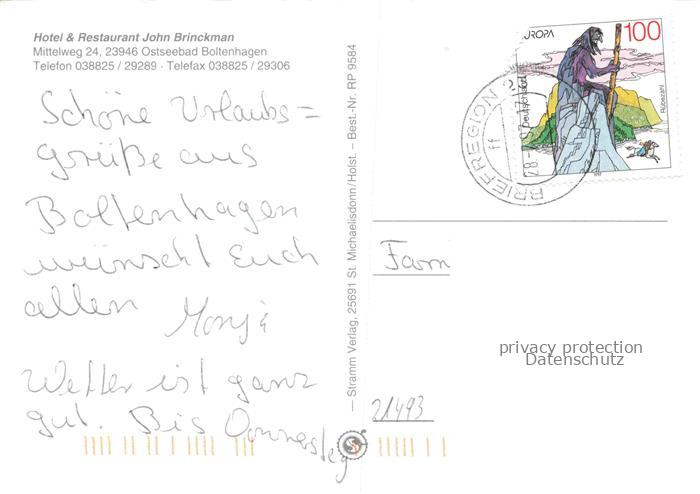 Hotel & Restaurant John Brinckman
Mittelweg 24, 23946 Ostseebad Boltenhagen
Telefon 038825 / 29289 · Telefax 038825 / 29306
Schöne Urlaubs=
grüße aus
Boltenhagen
wünscht Euch
allen
Wetter ist ganz
gut. Bis Donnerstag
— Stramm Verlag, 25691 St. Michaelisdonn/Holst. – Best.-Nr. RP 9584
EUROPA
100
Deutschland
Rübezahl
BRIEFREGION
ff
Fam
privacy protection
Datenschutz
21493